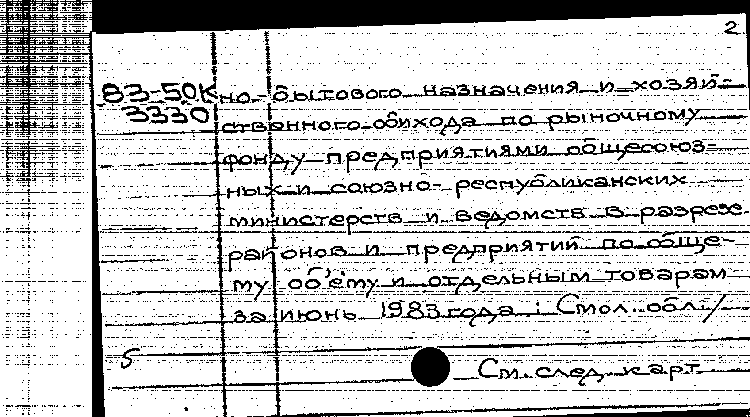 2
83-50К
3330
но-бытового назначения и хозяй-
ственного обихода по рыночному
фонду предприятиями общесоюз-
ных и союзно-республиканских
министерств и ведомств в разрезе
районов и предприятий по обще-
му об'ему и отдельным товарам
за июнь 1983 года : Смол. обл./
5
См. след. карт.